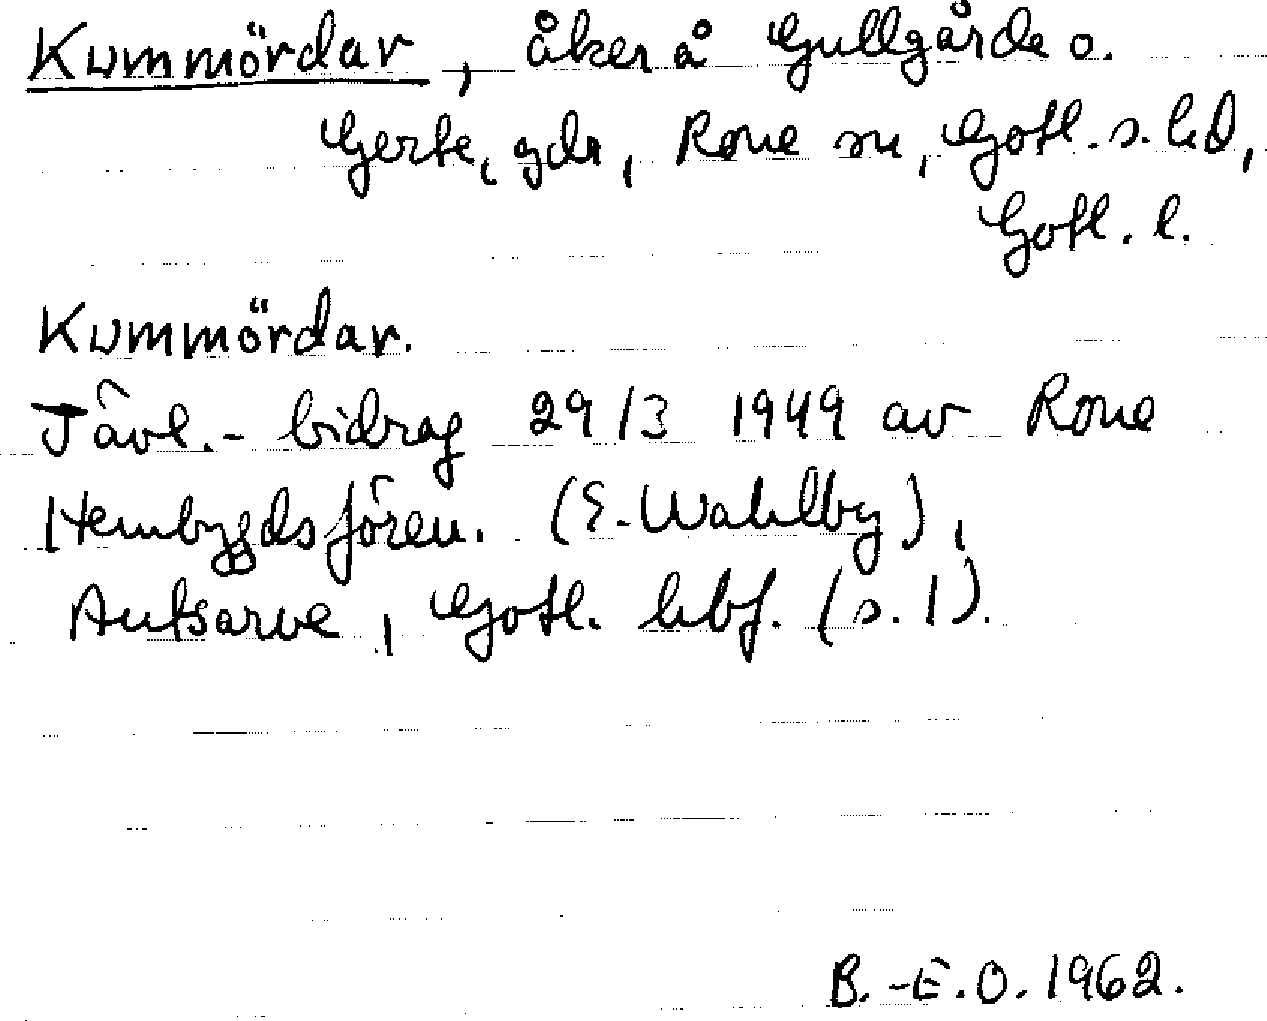 Kummördar, åker å Gullgårde o.
Gerte, gdr, Rone sn, Gotl. s. hd,
Gotl. l.
Kummördar.
Tävl.- bidrag 29/3 1949 av Rone
Hembygdsfören. (E. Wahlby),
Autsarve, Gotl. hbf. (s. 1).
B.-E.O. 1962.